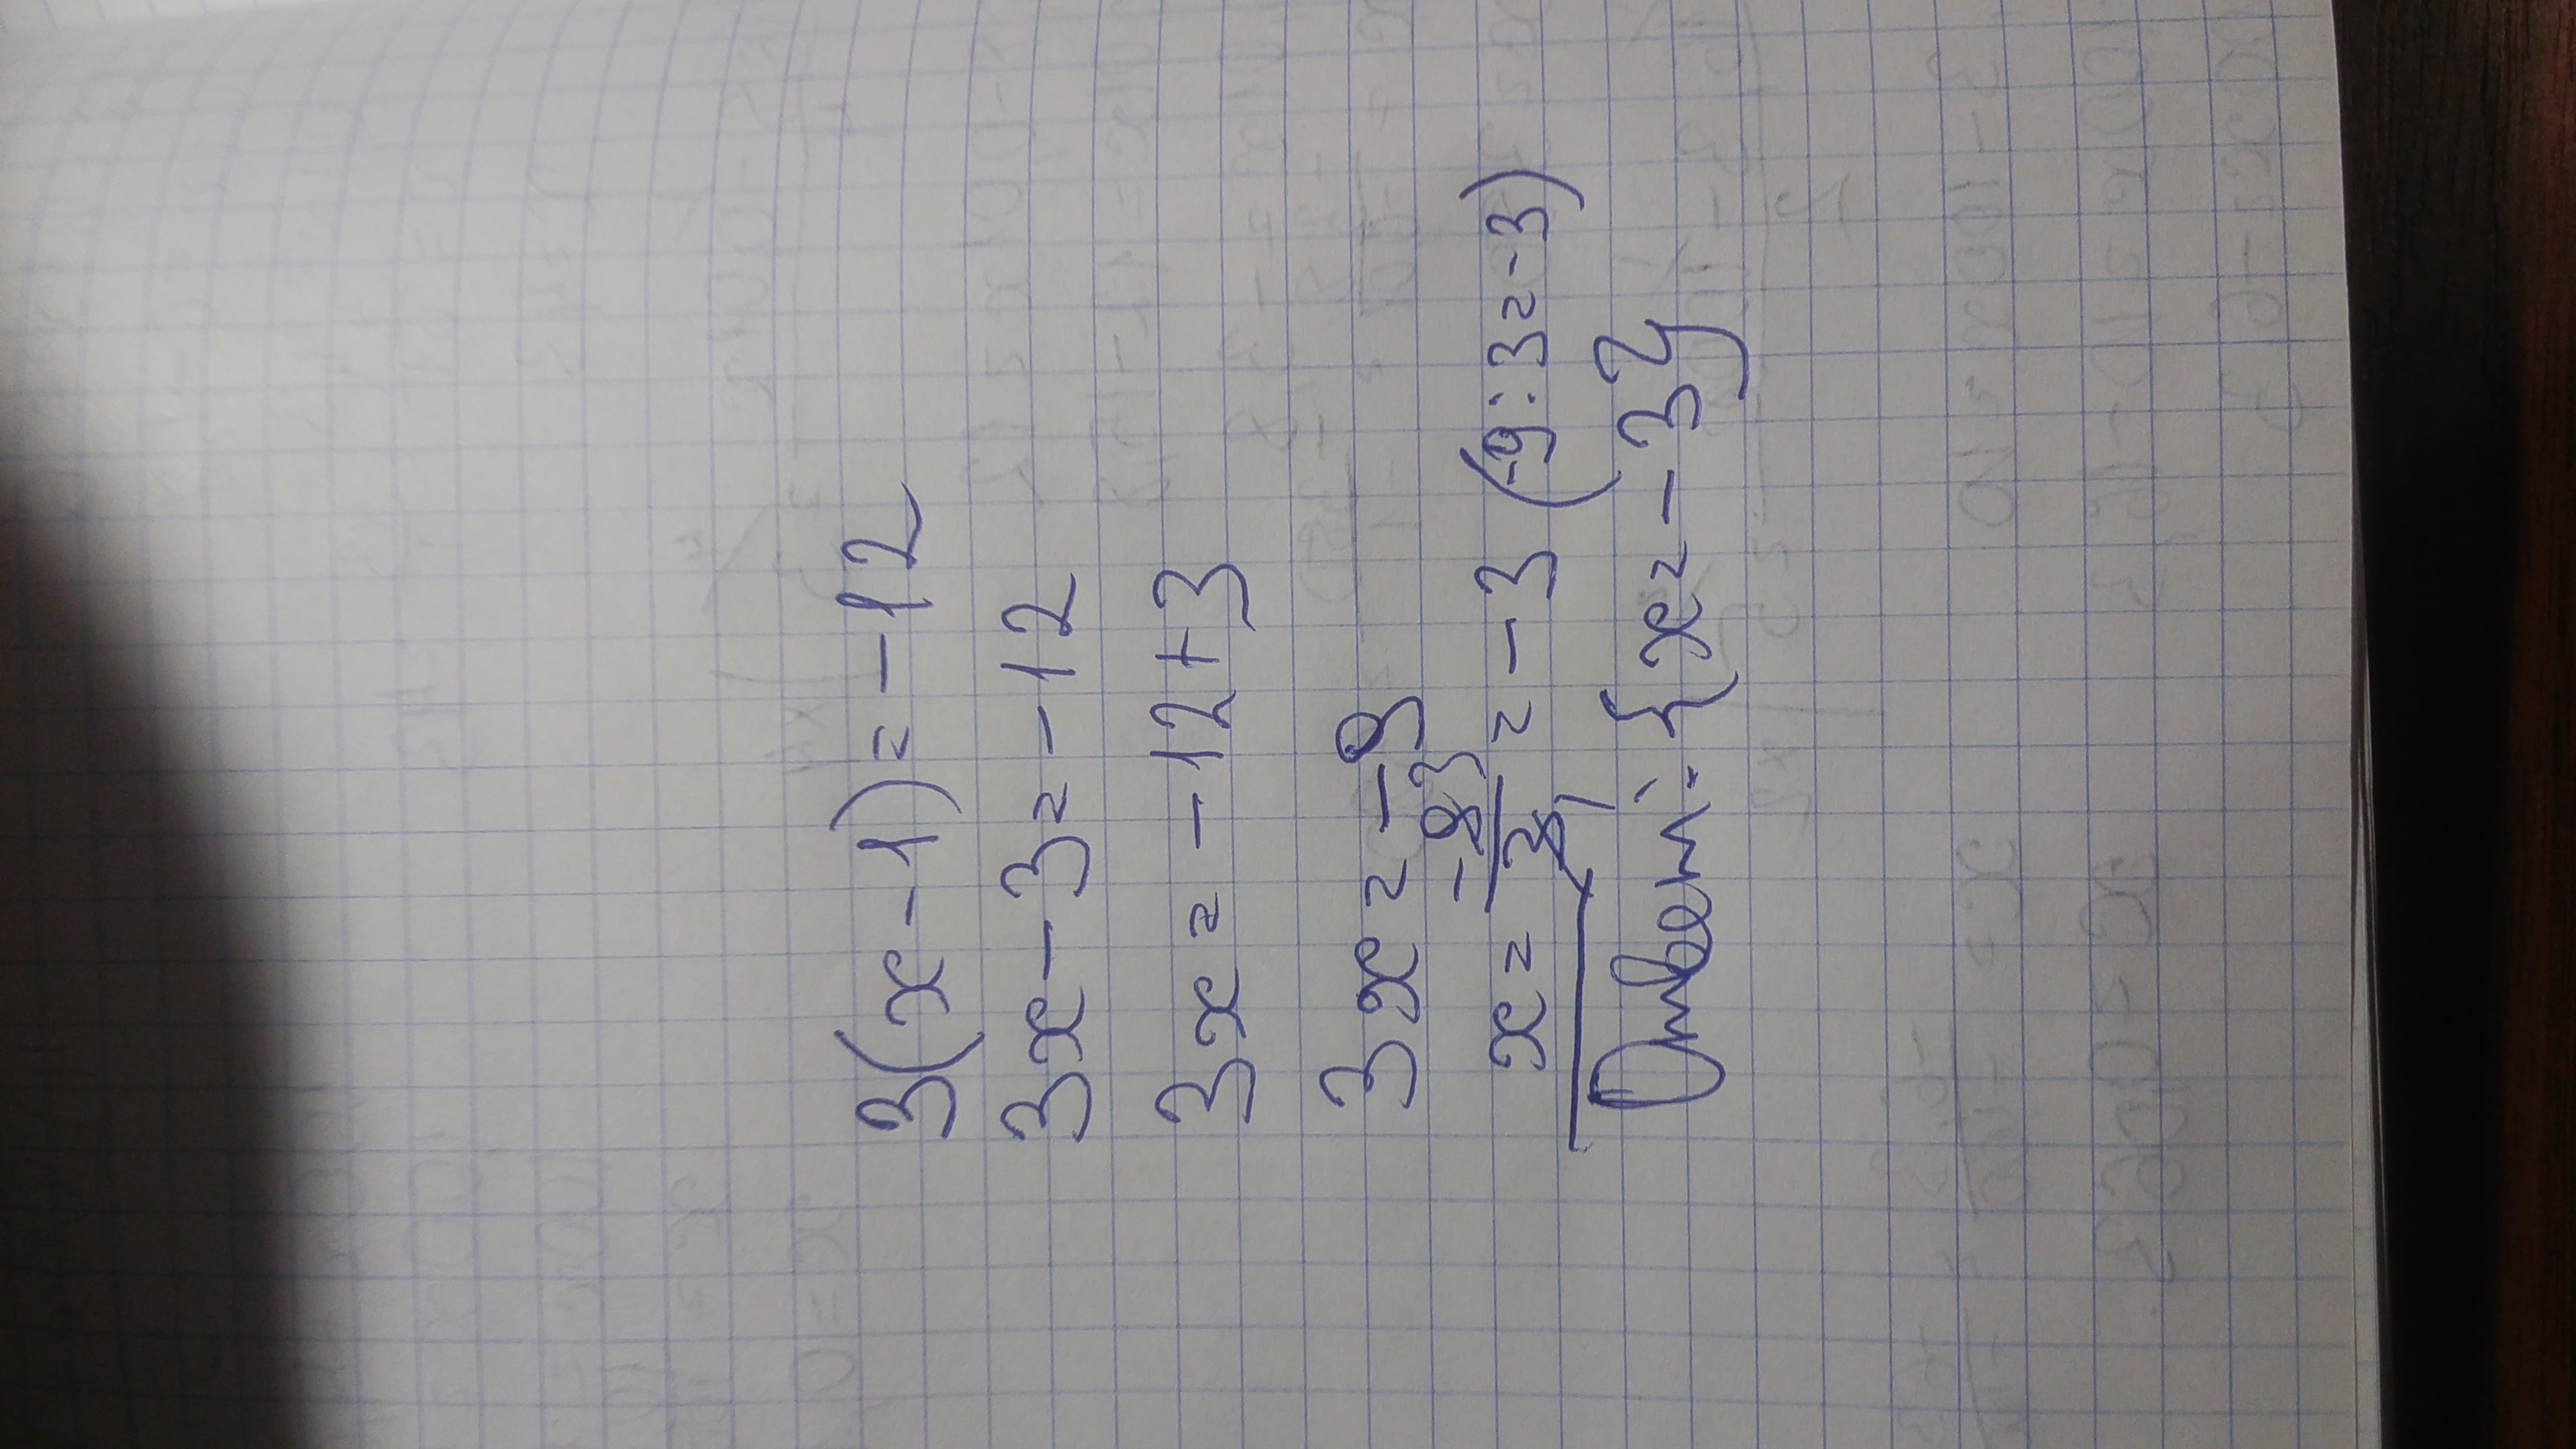 3(x-1)=-12
3x-3=-12
3x=-12+3
3x=-9
x=-9/3=-3 (-9:3=-3)
Ответ: {x=-3}